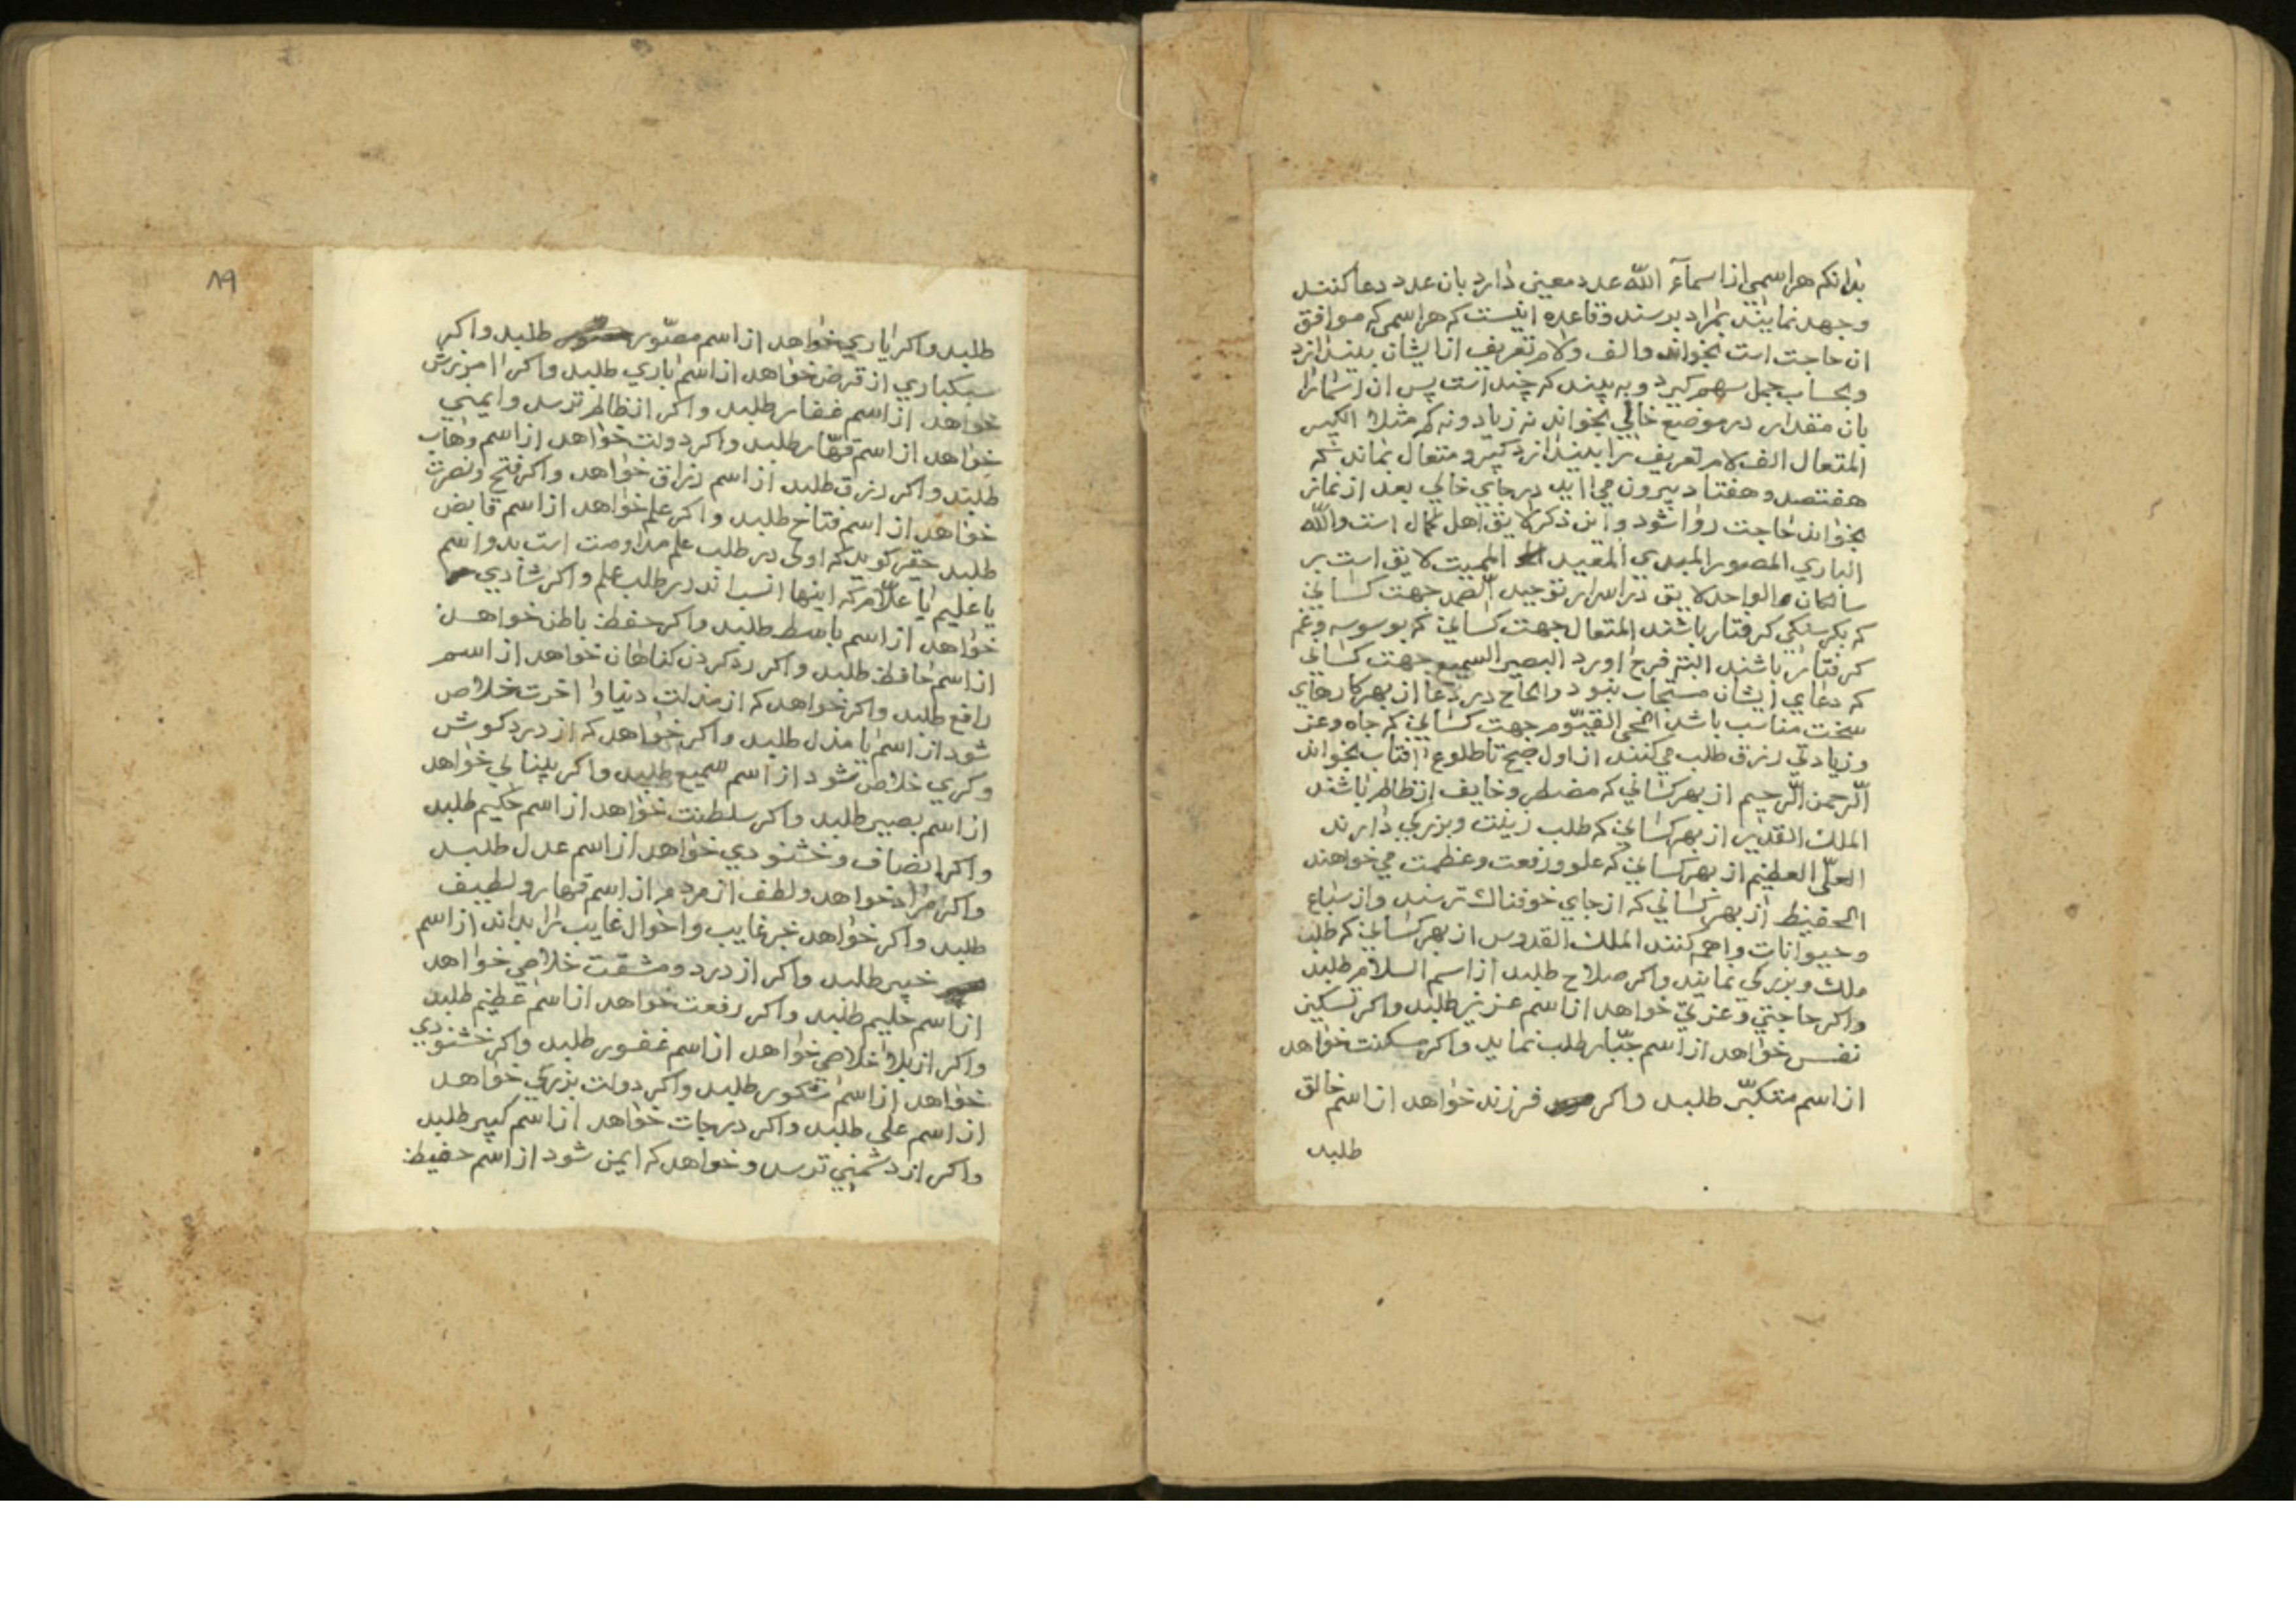 بدانکه هر اسمی از اسمآء الله عدد معین دارد بان عدد دعا کنند
وجهد نمایند بمراد برسند وقاعده اینست که هر اسمی که موافق
ان حاجت است بخواند والف ولام تعریف ازایشان بیندازد
وبحساب جمل سهم کیرد وبه بیند که چند است پس ان اسما را
بان مقدار در موضع خالی بخواند نه زیاد ونه کم مثلا الکبیر
المتعال الف لام تعریف را بیندازد کبیر و متعال بماند که
هفتصد وهفتاد بیرون می اید در جای خالی بعد از نماز
بخواند حاجت روا شود واین ذکر لایق اهل کمال است والله
الباری المصور المبدی المعید الممیت لایق است بر
سالکان والواحد لایق در اسرار توحید الصمد جهت کسانی
که بکرسنکی کرفتار باشند المتعال جهت کسانی که بوسوسه وغم
کرفتار باشند البته فرح اورد البصیر السمیع جهت کسانی
که دعای ایشان مستجاب نبود والحاح در دعا از بهر کارهای
سخت مناسب باشد الحی القیّوم جهت کسانی که جاه وعز
وزیادتی رزق طلب می کنند از اول صبح تا طلوع افتاب بخواند
الرّحمن الرّحیم از بهر کسانی که مضطر وخایف از ظالم باشند
الملک القدیر از بهر کسانی که طلب زینت وبزرکی دارند
العلّی العظیم از بهر کسانی که علو ورفعت وعظمت می خواهند
الحفیظ از بهر کسانی که از جای خوفناک ترسند واز سباع
وحیوانات واهمه کنند الملک القدوس از بهر کسانی که طلب
ملک وبزرکی نمایند واکر صلاح طلبد از اسم السلام طلبد
واکر حاجتی وعزتی خواهد از اسم عزیز طلبد واکر تسکین
نفس خواهد از اسم جبّار طلب نماید واکر مسکنت خواهد
از اسم متکبّر طلبد واکر فرزند خواهد از اسم خالق
طلبد
٨٩
طلبد واکر یاری خواهد از اسم مصّور طلبد واکر
سبکباری از قرض خواهد از اسم باری طلبد واکر امرزش
خواهد از اسم غفار طلبد واکر از ظالم ترسد وایمنی
خواهد از اسم قهّار طلبد واکر دولت خواهد از اسم وهاب
طلبد واکر رزق طلبد از اسم رزاق خواهد واکر فتح ونصرت
خواهد از اسم فتاح طلبد واکر علم خواهد از اسم قابض
طلبد حقیر کوید که اولی در طلب علم مداومت است بدو اسم
یا علیم یا علّام که اینها انسب اند در طلب علم واکر شادی
خواهد از اسم باسط طلبد واکر حفظ باطن خواهد
از اسم حافظ طلبد واکر رد کردن کناهان خواهد از اسم
رافع طلبد واکر خواهد که از مذلت دنیا و اخرت خلاص
شود از اسم یا مذل طلبد واکر خواهد که از درد کوش
وکری خلاص شود از اسم سمیع طلبد واکر بینایی خواهد
از اسم بصیر طلبد واکر سلطنت خواهد از اسم حکیم طلبد
واکر انصاف وخشنودی خواهد از اسم عدل طلبد
واکر مراد خواهد ولطف از مردم از اسم قهار ولطیف
طلبد واکر خواهد خبر غایب واحوال غایب را بداند از اسم
خبیر طلبد واکر از درد ومشقت خلاصی خواهد
از اسم حلیم طلبد واکر رفعت خواهد از اسم عظیم طلبد
واکر از بلا خلاصی خواهد از اسم غفور طلبد واکر خشنودی
خواهد از اسم شکور طلبد واکر دولت بزرکی خواهد
از اسم علی طلبد واکر درجات خواهد از اسم کبیر طلبد
واکر از دشمنی ترسد وخواهد که ایمن شود از اسم حفیظ